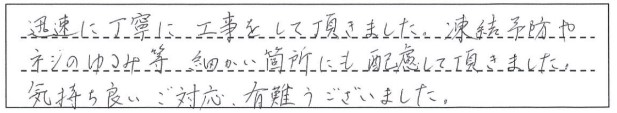 迅速に丁寧に 工事をして頂きました。凍結予防や
ネジのゆるみ等 細かい箇所にも 配慮して頂きました。
気持ち良い ご対応、有難うございました。